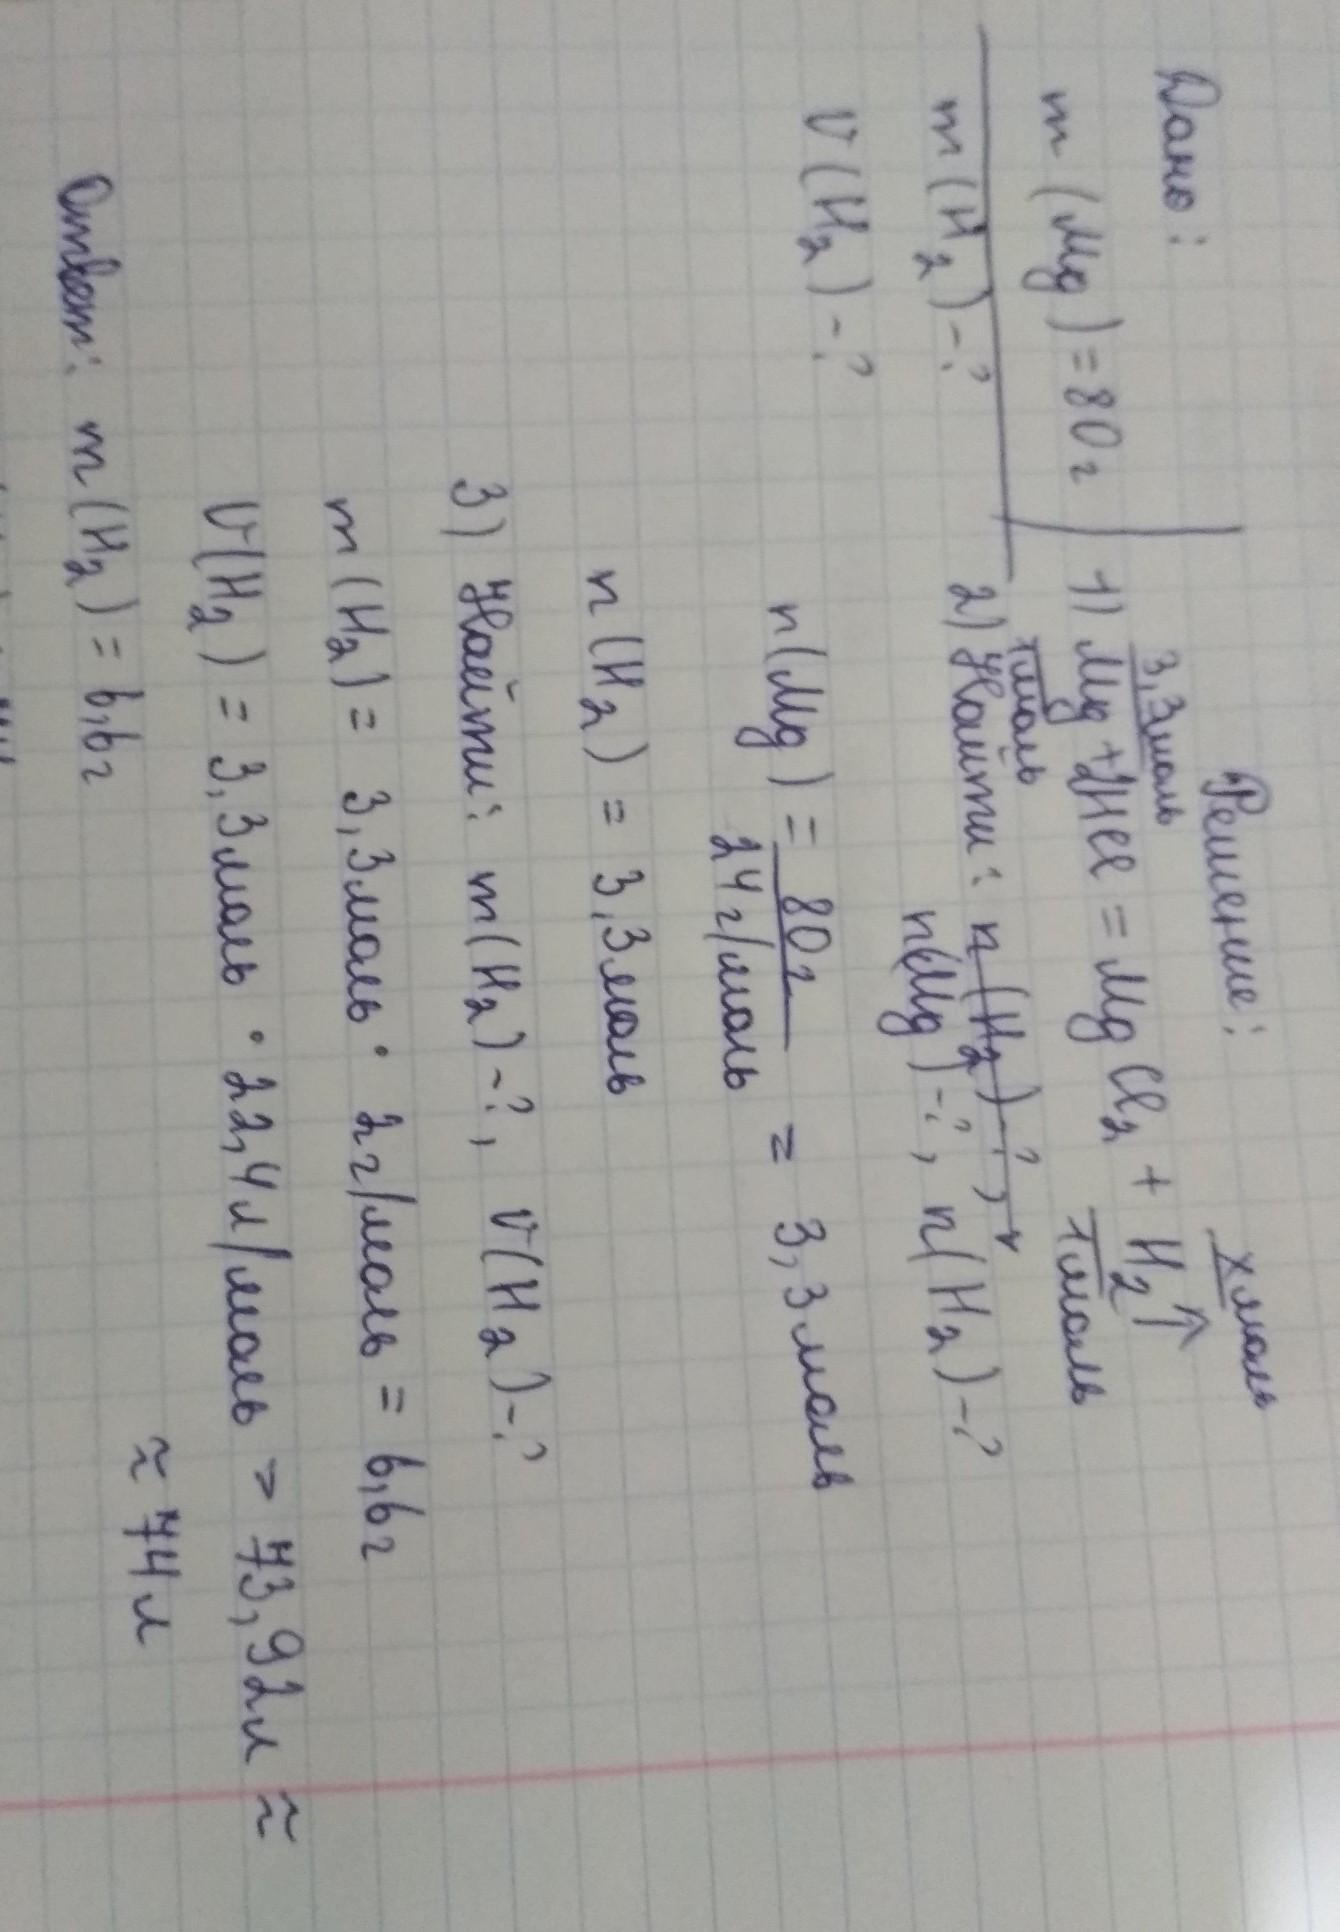 Дано:
m (Mg) = 80 г
m (H2) - ?
V (H2) - ?
Решение:
3,3моль xмоль
1) Mg + 2HCl = MgCl2 + H2↑
1моль 1моль
2) Найти: n (H2) - ?,
n(Mg) - ?, n(H2) - ?
n(Mg) = 80 г / 24 г/моль = 3,3 моль
n (H2) = 3,3 моль
3) Найти: m(H2) - ?, V(H2) - ?
m (H2) = 3,3моль · 2 г/моль = 6,6 г
V(H2) = 3,3моль · 22,4 л/моль = 73,92л ≈
≈ 74 л
Ответ: m (H2) = 6,6 г